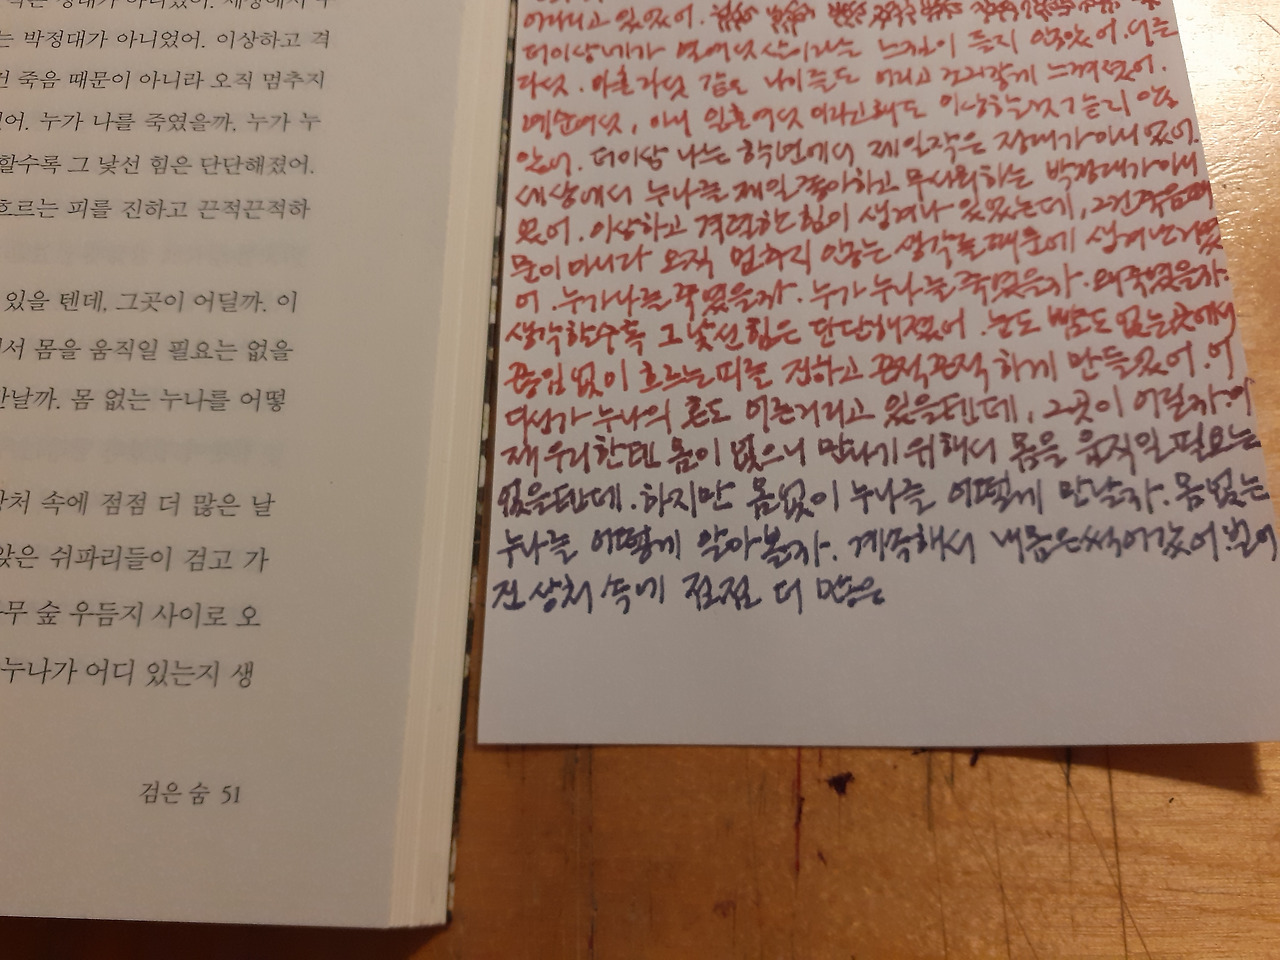 는 박정대가 아니었어. 이상하고 격
죽음 때문이 아니라 오직 멈추지
어. 누가 나를 죽였을까, 누가 누
할수록 그 낯선 힘은 단단해졌어.
흐르는 피를 진하고 끈적끈적하
있을 텐데, 그곳이 어딜까. 이
서 몸을 움직일 필요는 없을
만날까. 몸 없는 누나를 어떻
상처 속에 점점 더 많은 날
앉은 쉬파리들이 검고 가
무 숲 우듬지 사이로 오
누나가 어디 있는지 생
검은 숨 51
있었어.
더이상 내가 열여섯살이라는 느낌이 들지 않았어.
다섯. 마흔다섯 같은 나이들도 어리고 느껴졌어.
예순여섯, 아니 일흔여섯이라고 해도 이상할 것 같지 않
았어. 더이상 나는 학년에서 제일 작은 정대가 아니었어.
세상에서 누나를 제일 좋아하고 무서워하는 박정대가 아니
었어. 이상하고 격렬한 힘이 생겨나 있었는데, 그건 죽음 때
문이 아니라 오직 멈추지 않는 생각들 때문에 생겨난 거였
어. 누가 나를 죽였을까. 누가 누나를 죽였을까. 왜 죽였을까.
생각할수록 그 낯선 힘은 단단해졌어. 눈도 뺨도 없는 곳에서
끊임없이 흐르는 피를 진하고 끈적끈적하게 만들었어. 어
디선가 누나의 혼도 어른거리고 있을 텐데, 그곳이 어딜까. 이
제 우리한텐 몸이 없으니 만나기 위해서 몸을 움직일 필요는
없을 텐데. 하지만 몸 없이 누나를 어떻게 만날까. 몸 없는
누나를 어떻게 알아볼까. 계속해서 내 몸은 썩어갔어. 벌어
진 상처 속에 점점 더 많은